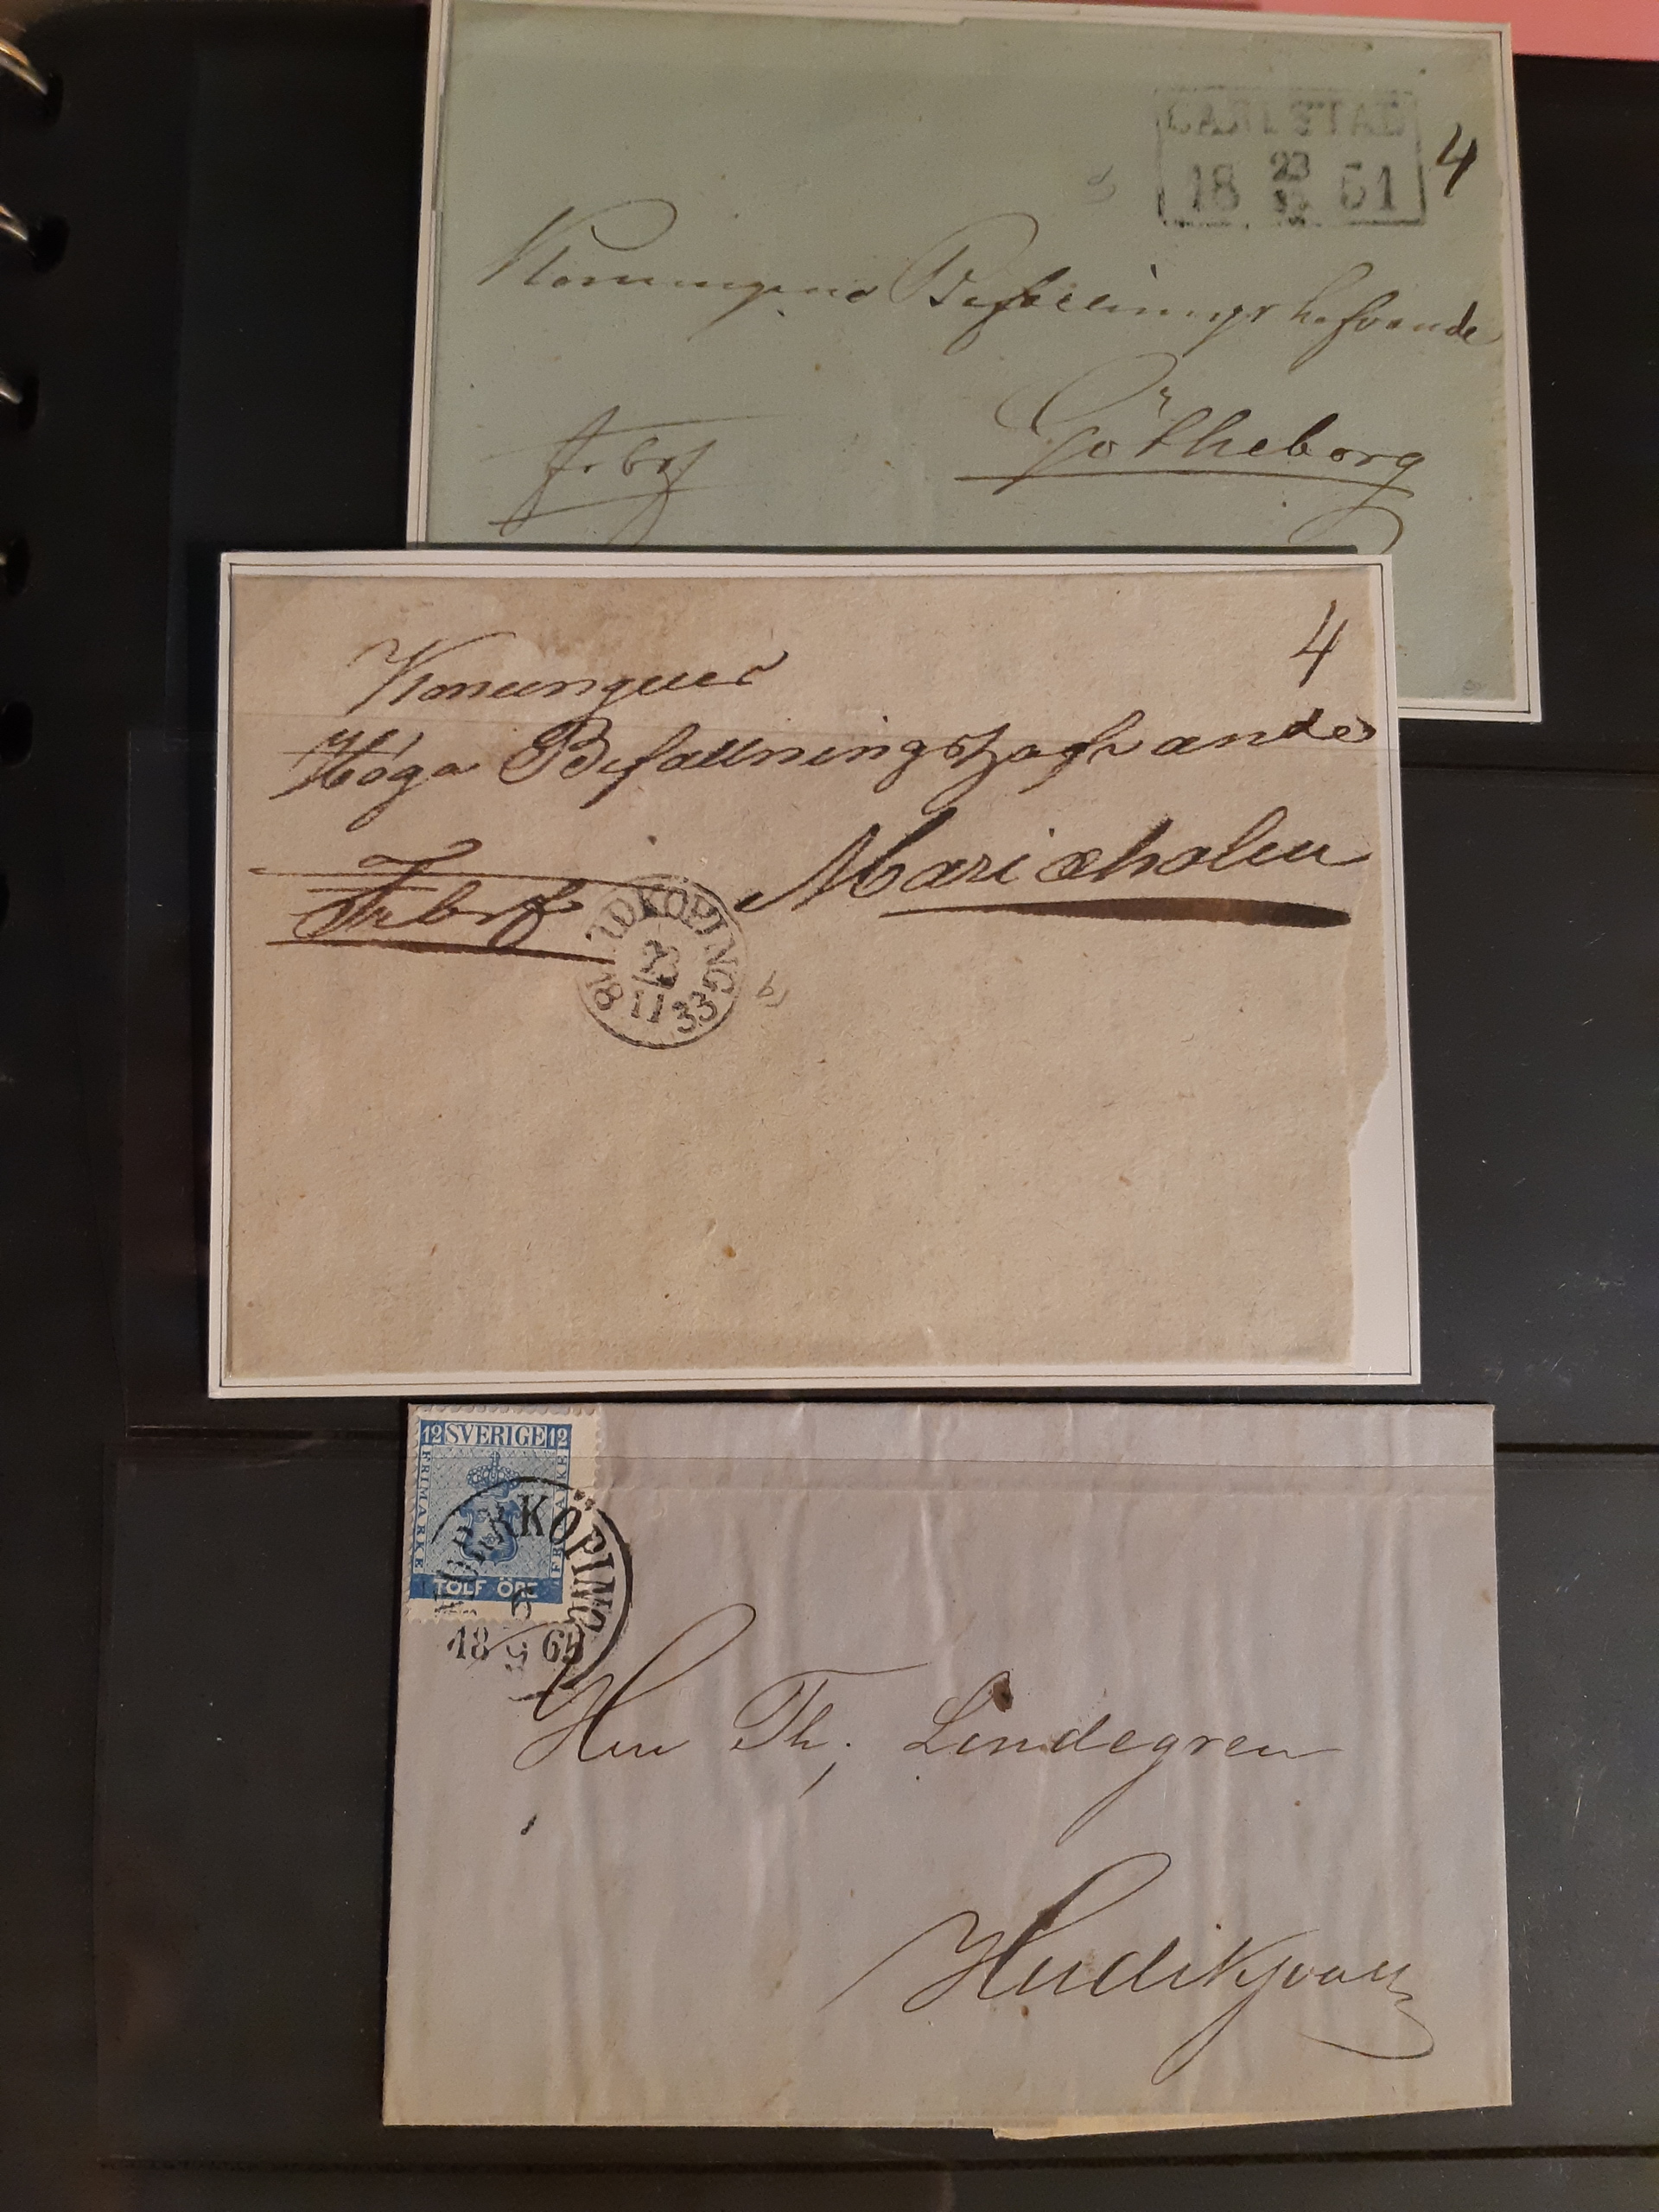 CARLSTAD
18 23 51
4
Konungens Befallningshafvande
Götheborg
frbrf
4
Konungens
Höga Befallningshafvandes
Mariæholm
Frbrf
LIDKÖPING
23
18 11 33
b)
12 SVERIGE 12
FRIMÄRKE FRIMÄRKE
TOLF ÖRE
NORRKÖPING
6
18 9 65
Herr Th. Lindegren
Hudiksvall